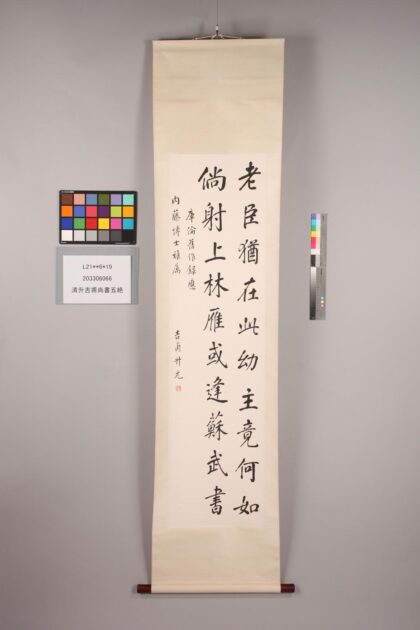 老臣猶在此幼主竟何如
倘射上林雁或逢蘇武書
庫倫舊作録應
内藤博士雅属
吉甫升允
L21**6*19
203306066
清升吉甫尚書五絶